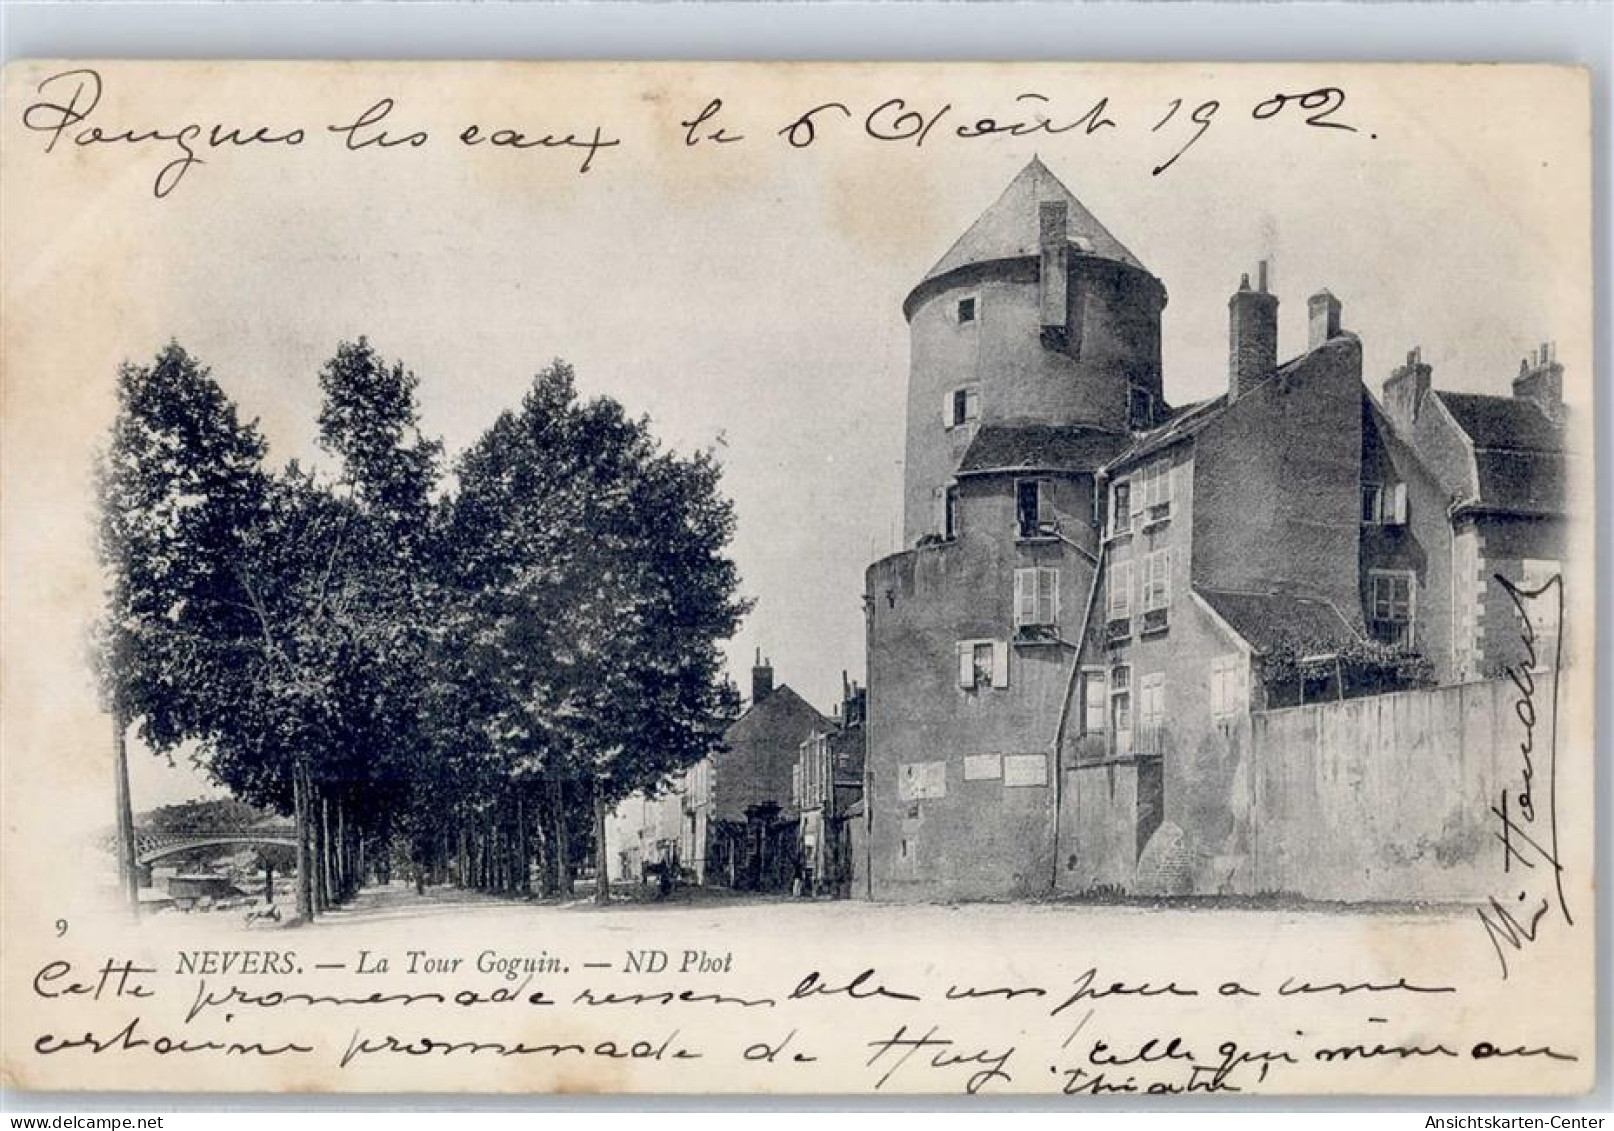 Pougues les eaux le 6 Août 1902.
9
NEVERS. — La Tour Goguin. — ND Phot
Cette promenade ressemble un peu a une
certaine promenade de Huy! Celle qui mène au
théatre!
M.
Ansichtskarten-Center